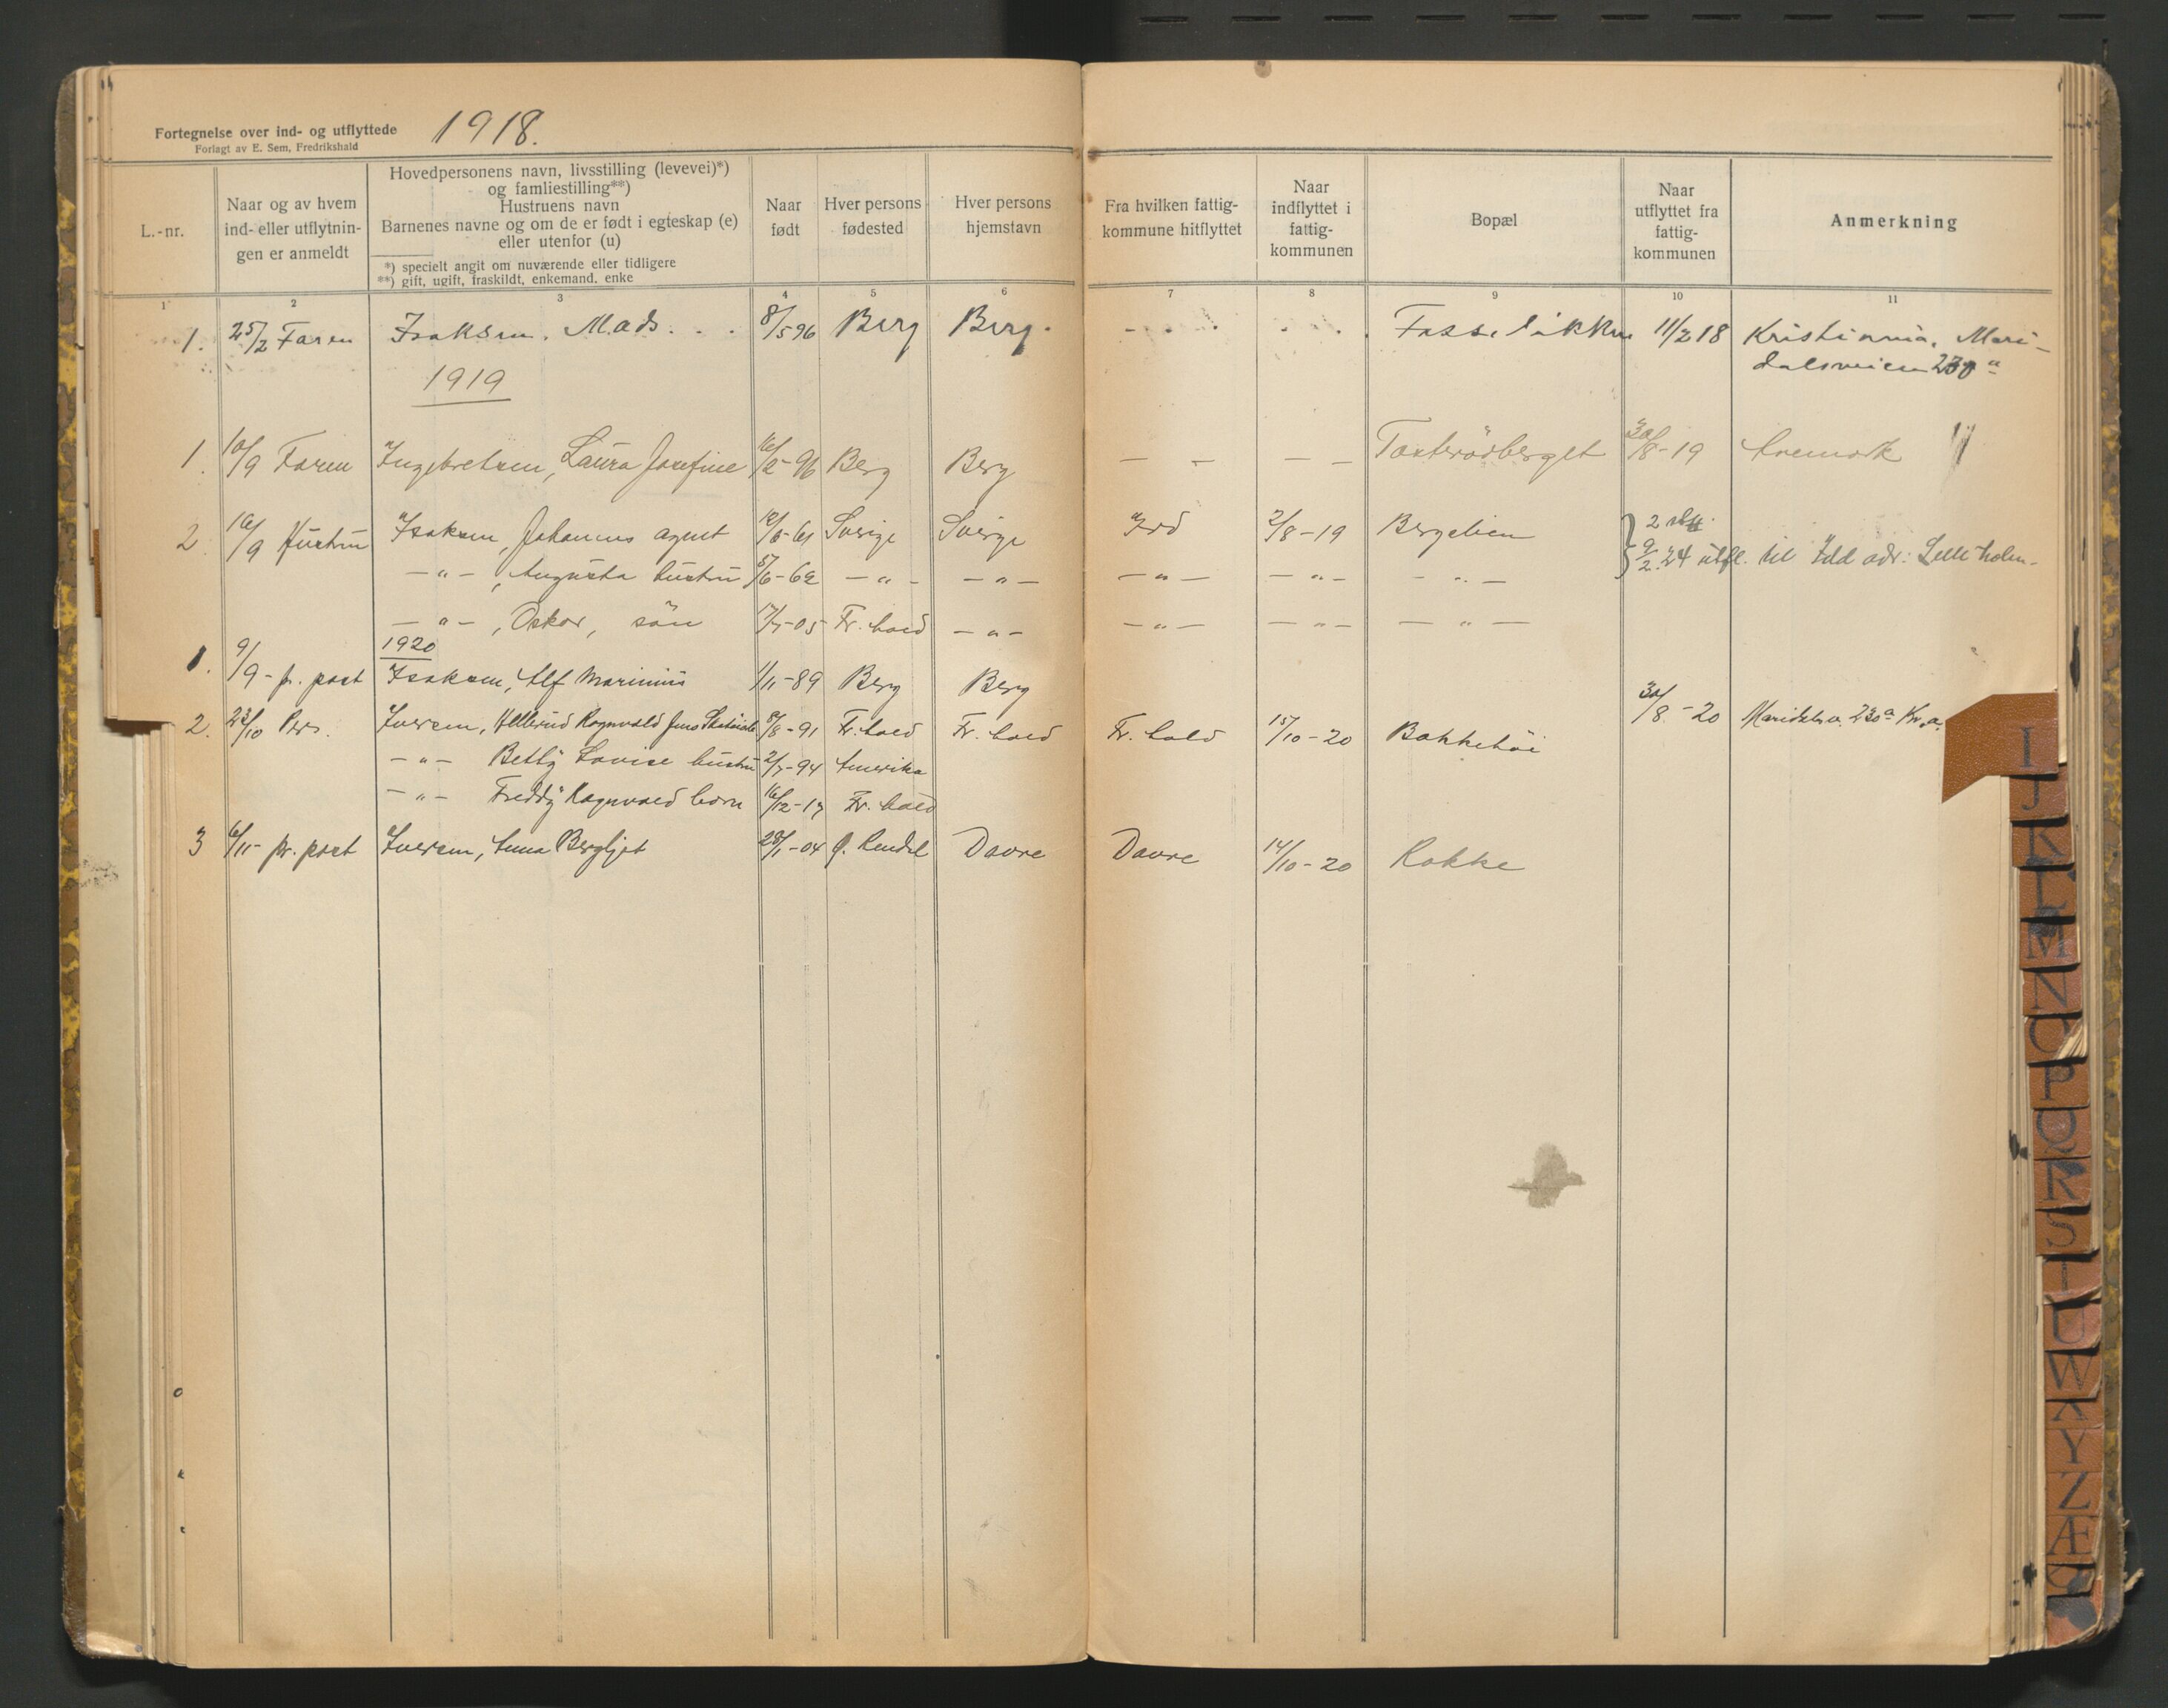 Fortegnelse over ind- og utflyttede 1918.
Forlagt av E. Sem, Fredrikshald
L.-nr.
Naar og av hvem
ind- eller utflytnin-
gen er anmeldt
Hovedpersonens navn, livsstilling (levevei)*)
og famliestilling**)
Hustruens navn
Barnenes navne og om de er født i egteskap (e)
eller utenfor (u)
*) specielt angit om nuværende eller tidligere
**) gift, ugift, fraskildt, enkemand, enke
Naar
født
Hver persons
fødested
Hver persons
hjemstavn
Fra hvilken fattig-
kommune hitflyttet
Naar
indflyttet i
fattig-
kommunen
Bopæl
Naar
utflyttet fra
fattig-
kommunen
Anmerkning
1 2 3 4 5 6 7 8 9 10 11
1. 25/2 Faren Isaksen, Mads 8/5 96 Berg Berg. 11/2 18 Kristiania, Mari-
dalsveien 230 a
1919
1. 10/9 Faren Ingebretsen, Laura Josefine 96 Berg Berg — — — — Torterödberget 30/8-19 Aremark
2. 16/9 Hustru Isaksen, Johannes agent Sverige Sverige Idd 2/8-19 Bergelien 2
— " — , Augusta hustru 5/6-62 — " — — " — — " — — " — — " — 9/2 24 utfl. til Idd adr: Lilleholm.
— " — , Oskar, sön 17/7-05 Fr.hald — " — — " — — " — — " —
1920
1. 9/9 - p. post Isaksen, Alf Marinius 1/11-89 Berg Berg 30/8-20 Maridalsv. 230 a Kr.a.
2. 23/10 Pers. Iversen, Ragnvald Jens 8/8-91 Fr.hald Fr.hald Fr.hald 15/10-20 Bakkehöi
— " — Betty Lovise hustru 2/7-94 Amerika
— " — Freddy Ragnvald barn 16/12-17 Fr.hald
3 6/11 - pr. post Iversen, Anna Bergljot 28/1-04 Ø. Rendal Dovre Dovre 14/10-20 Rokke
I
J
K
L
M
N
O
P
Q
R
S
T
U
W
X
Y
Z
Æ
Ø